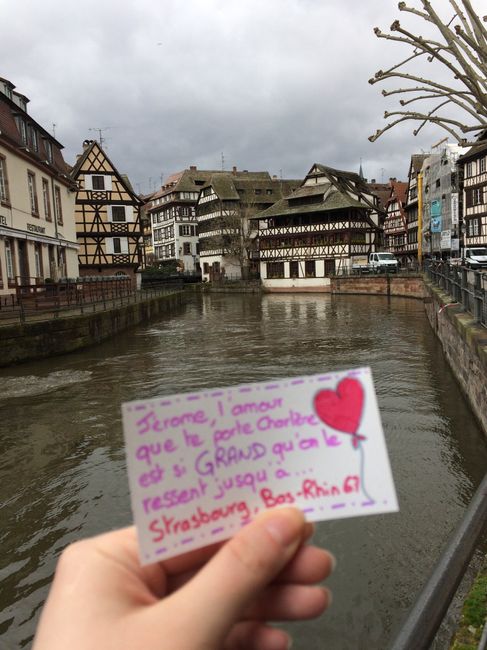 RESTAURANT
Jérome, l'amour
que te porte Charlène
est si GRAND qu'on le
ressent jusqu'à...
Strasbourg, Bas-Rhin 67